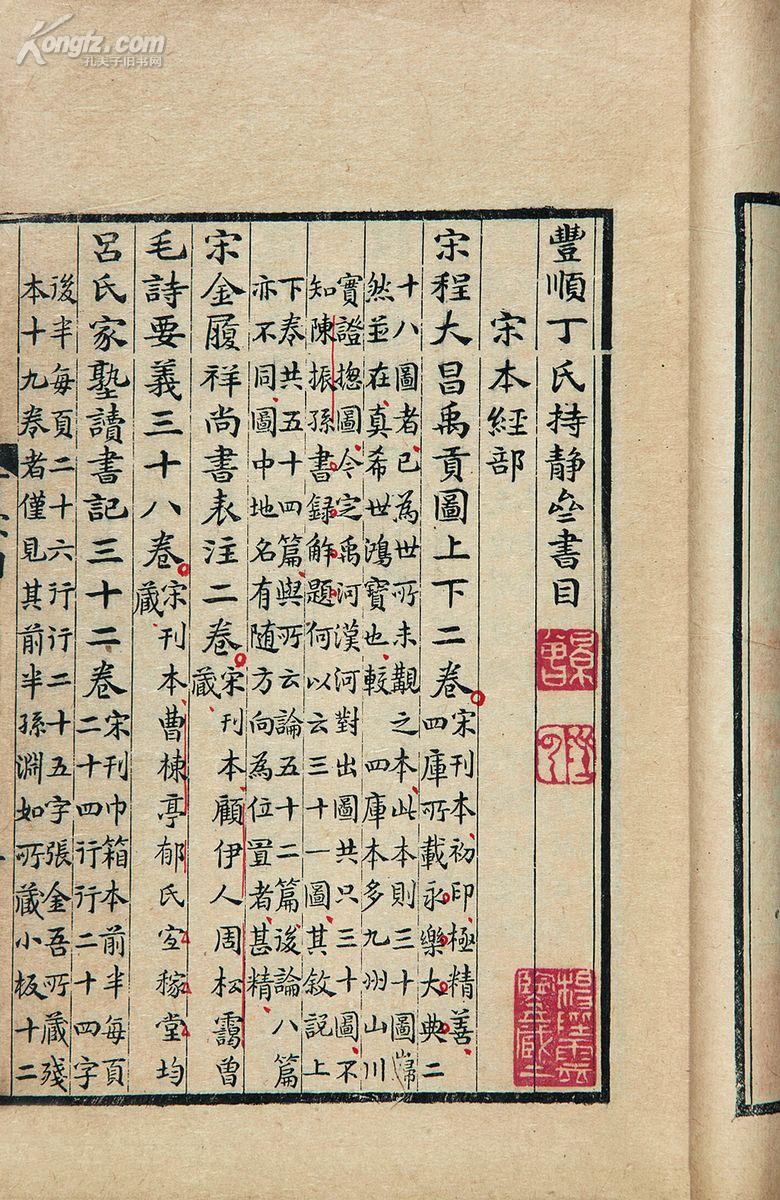 Kongfz.com
孔夫子旧书网
豐順丁氏持静㕘書目
宋本經部
宋程大昌禹貢圖上下二卷
宋刊本初印極精善
四庫所載永樂大典二
十八圖者已為世所未覯之本此本則三十圖巋
然並在真希世鴻寶也較四庫本多九州山川
實證揔圖今定禹河漢河對出圖共只三十圖不
知陳振孫書録解題何以云三十一圖其敘説上
下卷共五十四篇與所云論五十二篇後論八篇
亦不同圖中地名有随方向為位置者甚精
宋金履祥尚書表注二卷
宋刊本顧伊人周松靄曾
藏
毛詩要義三十八卷
宋刊本曹楝亭郁氏宐稼堂均
藏
吕氏家塾讀書記三十二卷
宋刊巾箱本前半每頁
二十四行行二十四字
後半每頁二十六行行二十五字張金吾所藏殘
本十九卷者僅見其前半孫淵如所藏小板十二